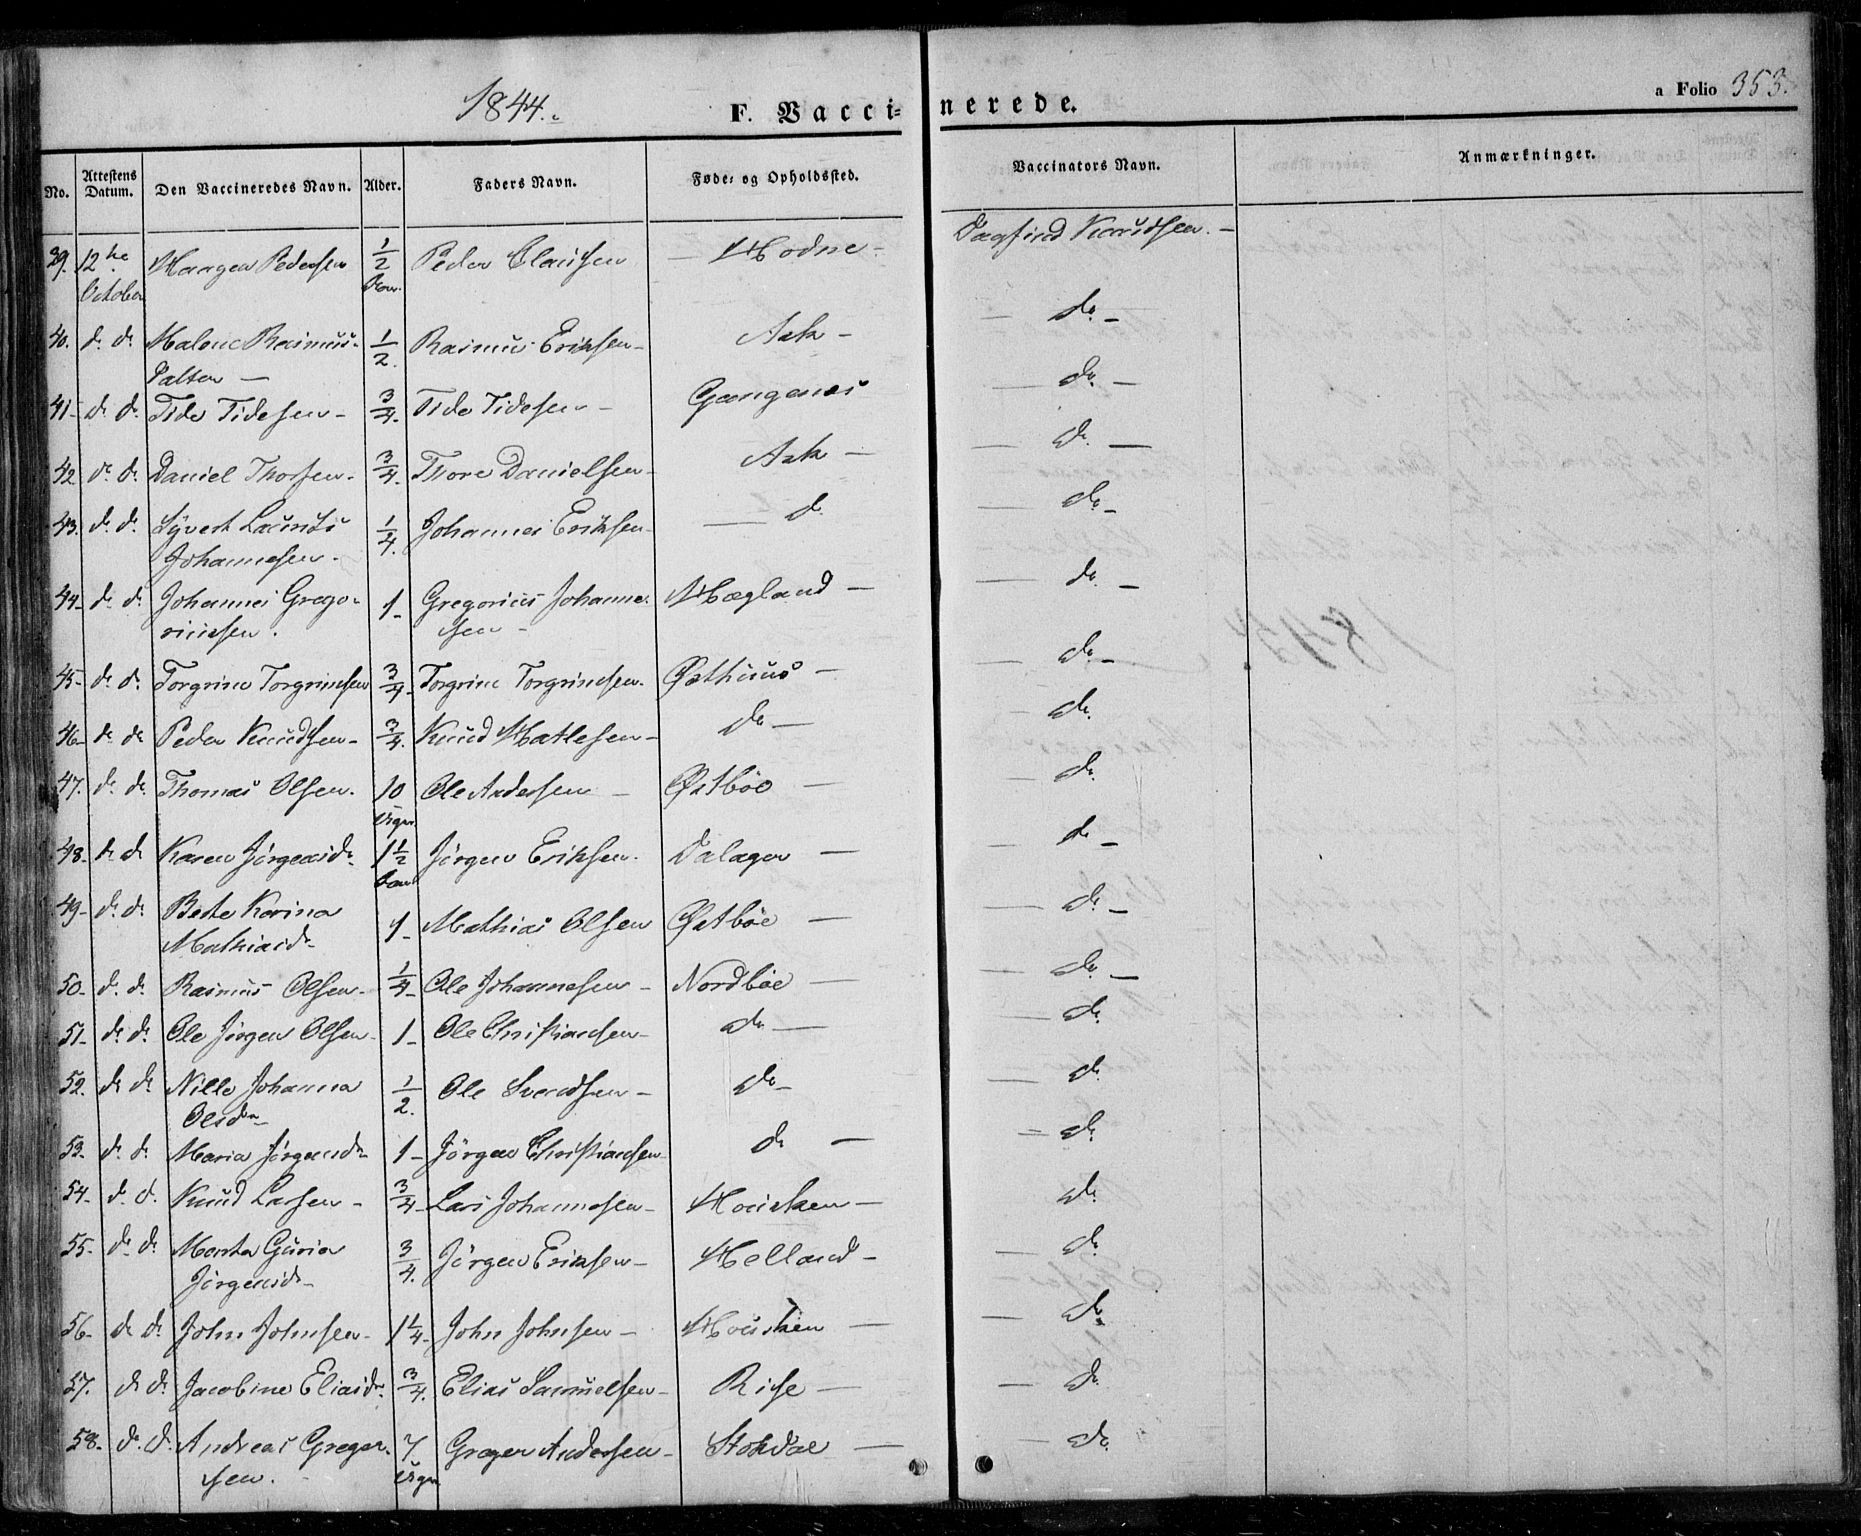 1844. F. Vaccinerede. a Folio 353.
No. Attestens Datum. Den Vaccineredes Navn. Alder. Faders Navn. Føde- og Opholdssted. Vaccinators Navn. Anmærkninger.
39. 12te October Haagen Pedersen 1/2 Peder Clausen Hodne - Dagfind Knudsen. -
40. do do Malene Rasmus- 1/2. Rasmus Eriksen - Ask - do -
Datter -
41 - do do Tide Tidesen - 3/4. Tide Tidesen - Gangenæs do -
42 do do Daniel Thorsen. 3/4. Thore Danielsen - Ask - do -
43. do do Syvert Lauritz 1/4. Johannes Eriksen - do do -
Johannesen.
44 - do do Johannes Grego- 1 - Gregorius Johanne- Hegland - do -
riussen. sen -
45 - do do Torgrim Torgrimsen 3/4 - Torgrim Torgrimsen. Østhuus - do -
46 - do do Peder Knudsen - 3/4. Knud Matlesen - do - do
47. do do Thomas Olsen. 10 Uger Ole Andersen - Østbøe - do
48. do do Karen Jørgensdr 1 1/2 Jørgen Eriksen. Dalager - do -
49 - do do Berte Karina 1 - Mathias Olsen Østbøe - do -
Mathiasdr
50 - do do Rasmus Olsen - 1/4 - Ole Johannesen - Nordbøe - do -
51 - do do Ole Jørgen Olsen - 1 - Ole Christiansen - do - do
52. do do Nille Johanna 1/2. Ole Svendsen - do - do
Olsdr
53 - do do Maria Jørgensdr 1 - Jörgen Christiansen - do - do
54 - do do Knud Larsen - 3/4 - Lars Johannesen - Housken - do
55 - do do Marta Guria 3/4. Jörgen Eriksen - Helland - do
Jørgensdr -
56 - do do John Johnsen - 1 1/4 - John Johnsen - Housken - do
57. do do Jacobine Eliasdr 3/4. Elias Samuelsen - Rise - do
58 - do do Andreas Greger- 7 Uger Greger Andersen - Stokdal - do
sen.